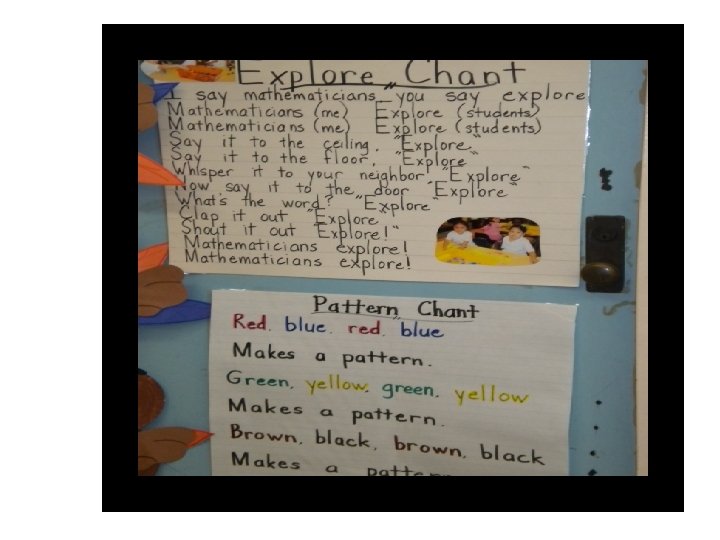 "Explore" Chant
I say mathematicians you say explore
Mathematicians (me) Explore (students)
Mathematicians (me) Explore (students)
Say it to the ceiling, "Explore"
Say it to the floor, "Explore"
Whisper it to your neighbor, "Explore"
Now say it to the door "Explore"
What's the word? "Explore"
Clap it out "Explore"
Shout it out "Explore!"
Mathematicians explore!
Mathematicians explore!
Pattern Chant
Red, blue, red, blue
Makes a pattern.
Green, yellow, green, yellow
Makes a pattern.
Brown, black, brown, black
Makes a pattern